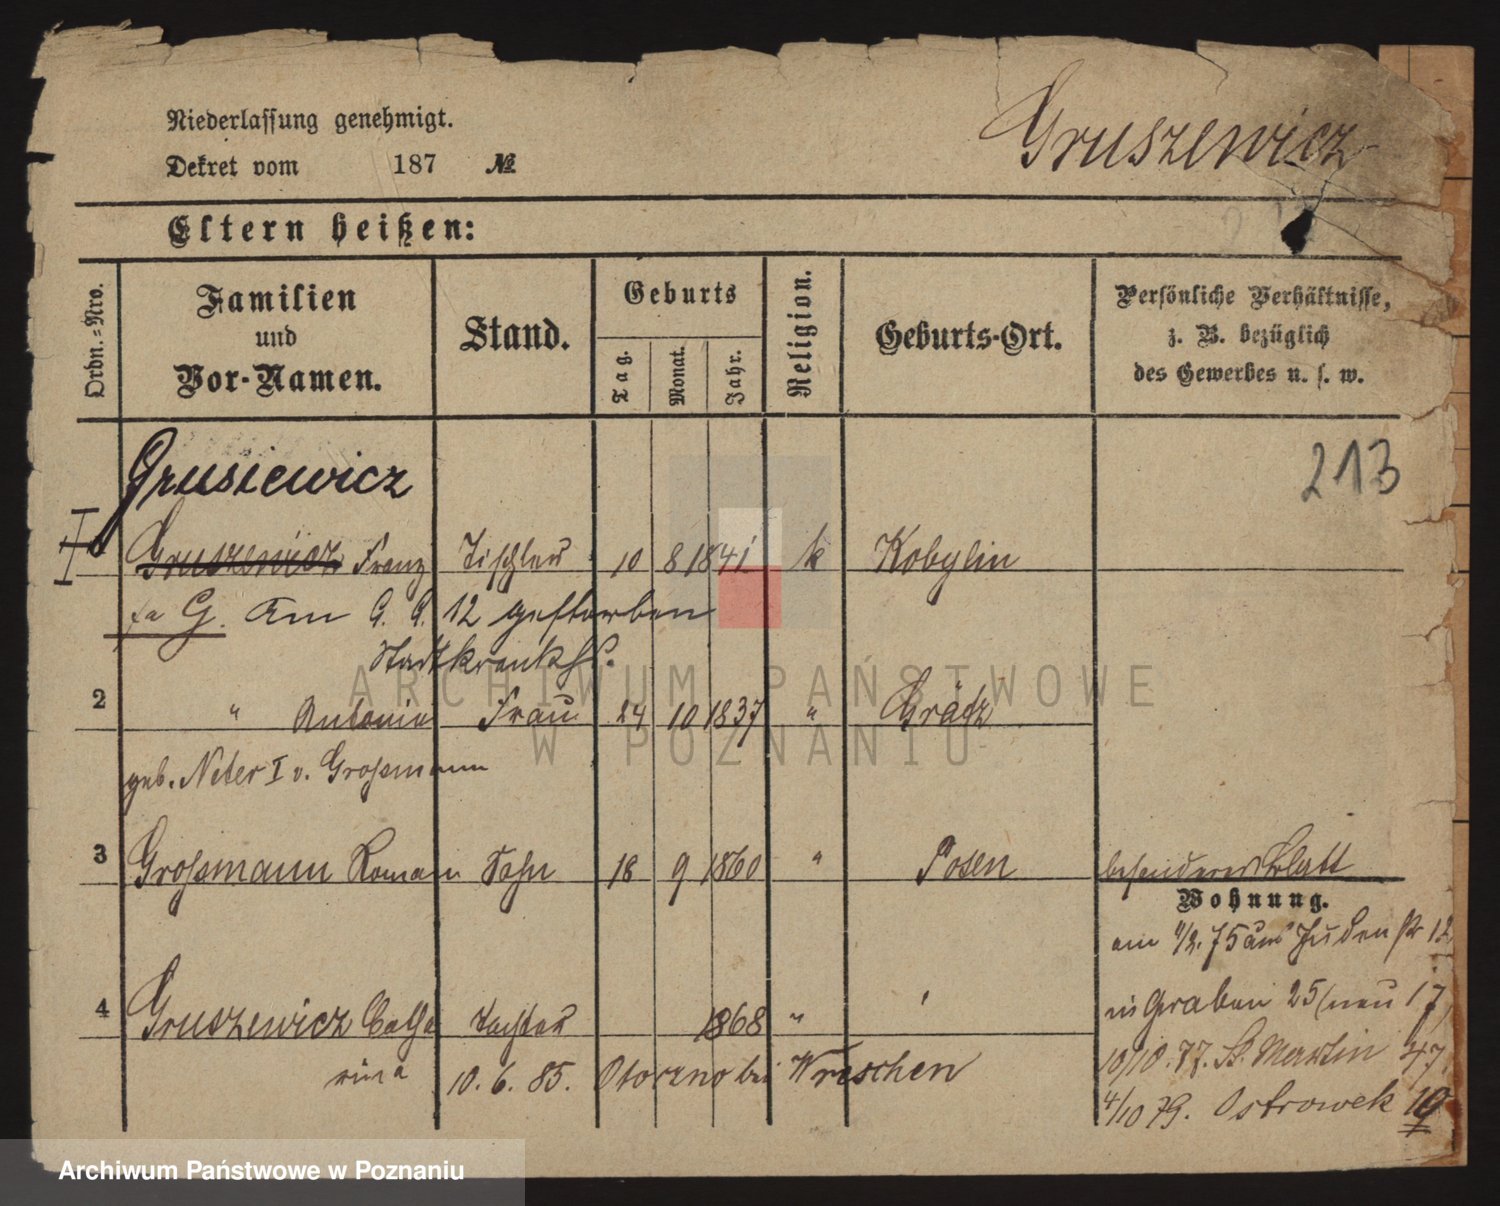 Niederlassung genehmigt.
Dekret vom 187 №
Gruszewicz
Eltern heißen:
Ordn.-Nro.
Familien
und
Vor-Namen.
Stand.
Geburts
Tag.
Monat.
Jahr.
Religion.
Geburts-Ort.
Persönliche Verhältnisse,
z. B. bezüglich
des Gewerbes u. s. w.
213
Grusiewicz
Gruszewicz Franz Tischler 10 8 1841 k Kobylin
G. Am 6. 6. 12 gestorben
Stadtkrankh.
2 " Antonie Frau 24 10 1837 " Grätz
geb. Neter I v. Großmann
3 Großmann Roman Sohn 18 9 1860 " Posen besonderes Blatt
Wohnung.
4 Gruszewicz Catha Tochter 1868 "
rina 10. 6. 85. Otorzno bei Wreschen
am 4/2. 75 Judenstr 12
Graben 25 (neu 17)
10/10. 77. St. Martin 47.
4/10 79. Ostrowek 19
ARCHIWUM PAŃSTWOWE
W POZNANIU
Archiwum Państwowe w Poznaniu